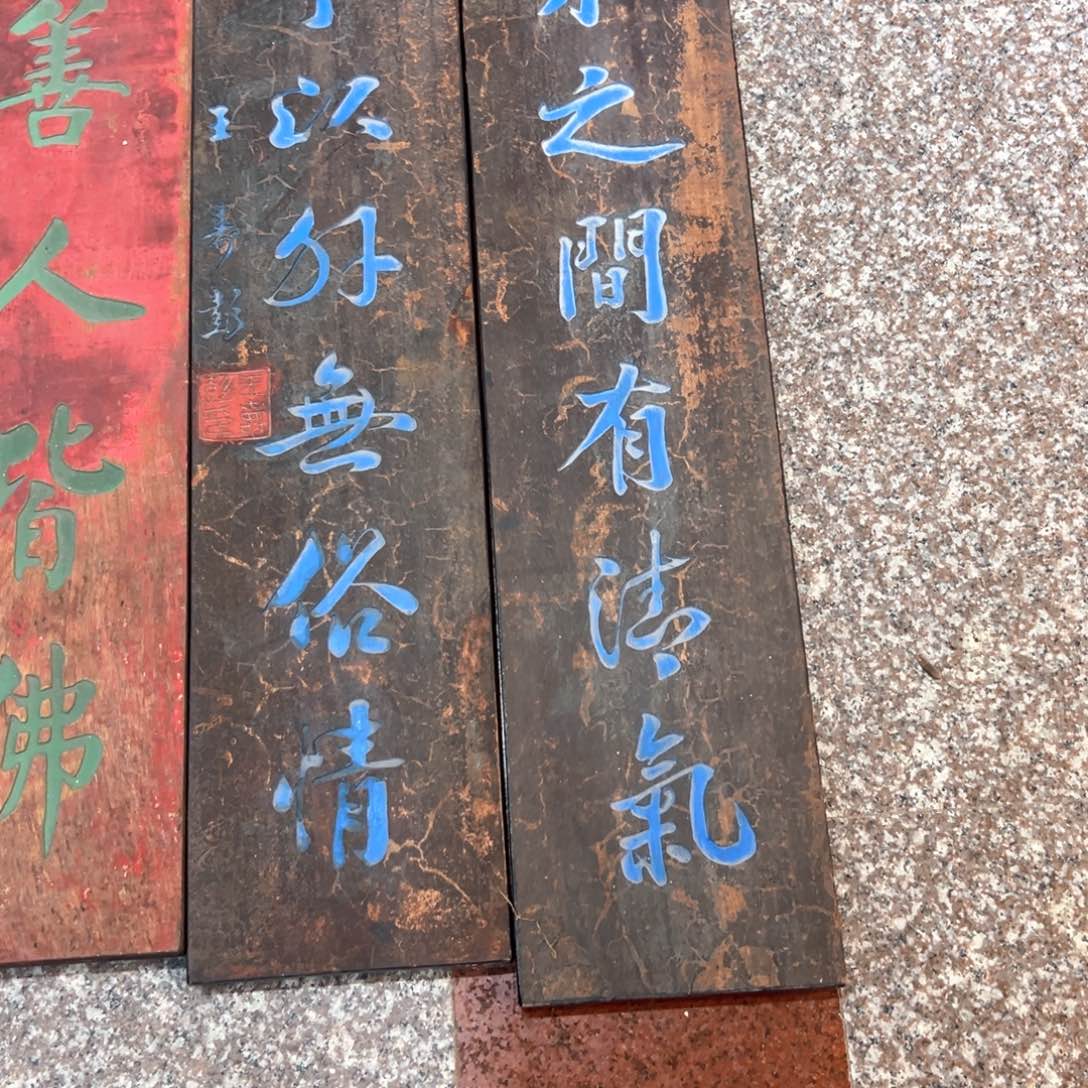 之間有清氣
以外無俗情
王壽彭
善人皆佛